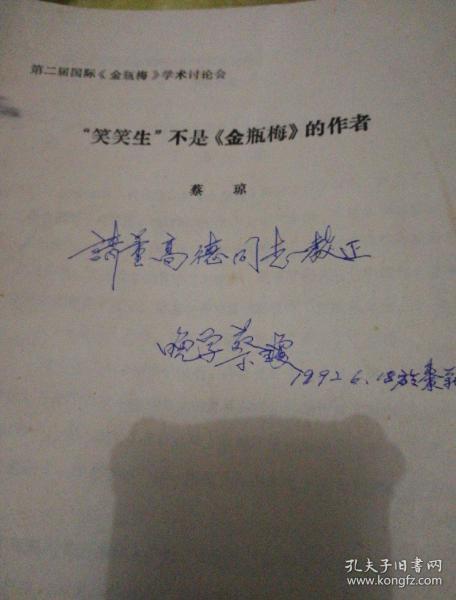 第二届国际《金瓶梅》学术讨论会
“笑笑生”不是《金瓶梅》的作者
蔡 琼
請董高德同志教正
晚学蔡瓊
1992.6.18於棗莊
孔夫子旧书网
www.kongfz.com